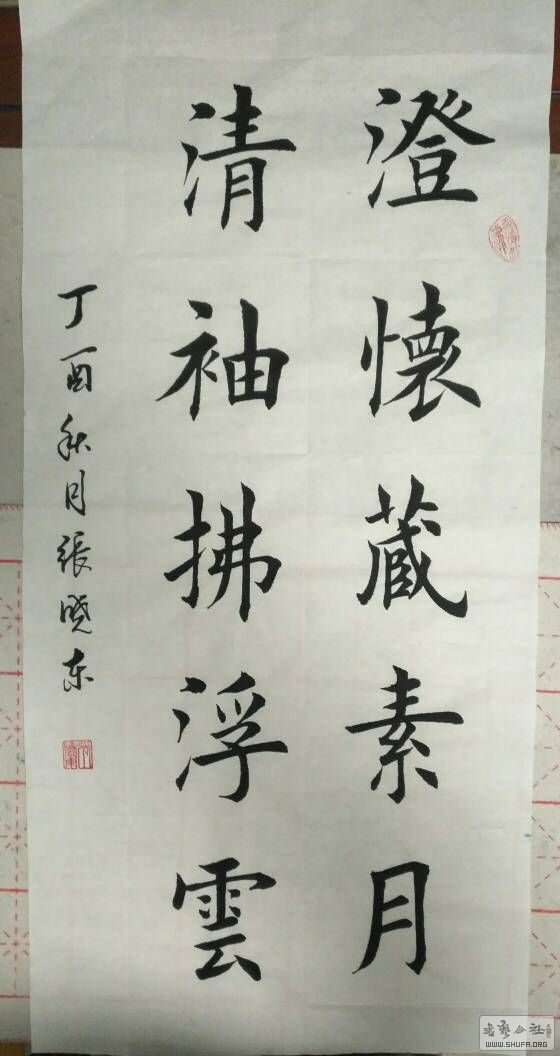 澄懷蔵素月
清袖拂浮雲
丁酉秋月張曉东
WWW.SHUFA.ORG